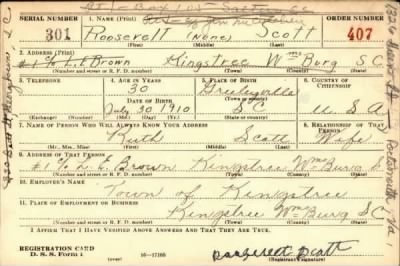 SERIAL NUMBER 1. NAME (Print) ORDER NUMBER
301 Roosevelt (None) Scott 407
(First) (Middle) (Last)
2. ADDRESS (Print)
#1 % L. E. Brown Kingstree Wmsburg S.C.
(Number and street or R. F. D. number) (Town) (County) (State)
3. TELEPHONE 4. AGE IN YEARS 5. PLACE OF BIRTH 6. COUNTRY OF CITIZENSHIP
30 Greeleyville
DATE OF BIRTH (Town or county)
July 30 1910 S C U S A
(Exchange) (Number) (Mo.) (Day) (Yr.) (State or country)
7. NAME OF PERSON WHO WILL ALWAYS KNOW YOUR ADDRESS 8. RELATIONSHIP OF THAT PERSON
Ruth Scott Wife
(Mr., Mrs., Miss) (First) (Middle) (Last)
9. ADDRESS OF THAT PERSON
#1 % L. E. Brown Kingstree WmsBurg
(Number and street or R. F. D. number) (Town) (County) (State)
10. EMPLOYER'S NAME
Town of Kingstree
11. PLACE OF EMPLOYMENT OR BUSINESS
Kingstree WmsBurg S C
(Number and street or R. F. D. number) (Town) (County) (State)
I AFFIRM THAT I HAVE VERIFIED ABOVE ANSWERS AND THAT THEY ARE TRUE.
REGISTRATION CARD
D. S. S. Form 1 16—17105 Roosevelt Scott
(Registrant's signature)
Portsmouth Va.